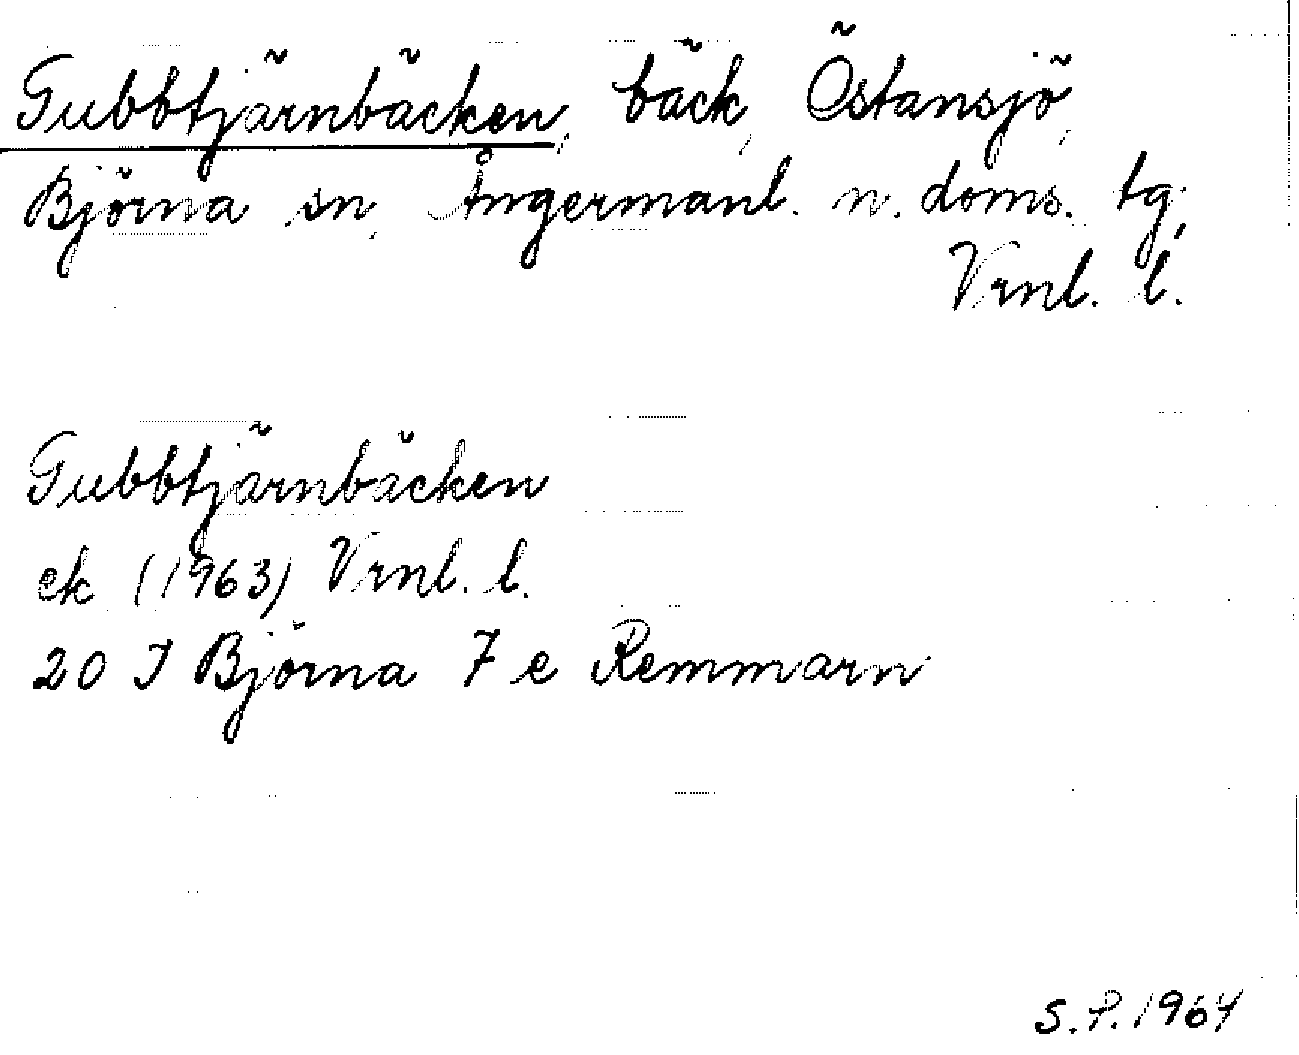 Gubbtjärnbäcken, bäck, Östansjö,
Björna sn, Ångermanl. n. doms. tg,
Vrnl. l.
Gubbtjärnbäcken
ek (1963) Vrnl. l.
20 J Björna 7 e Remmarn
S.P. 1964